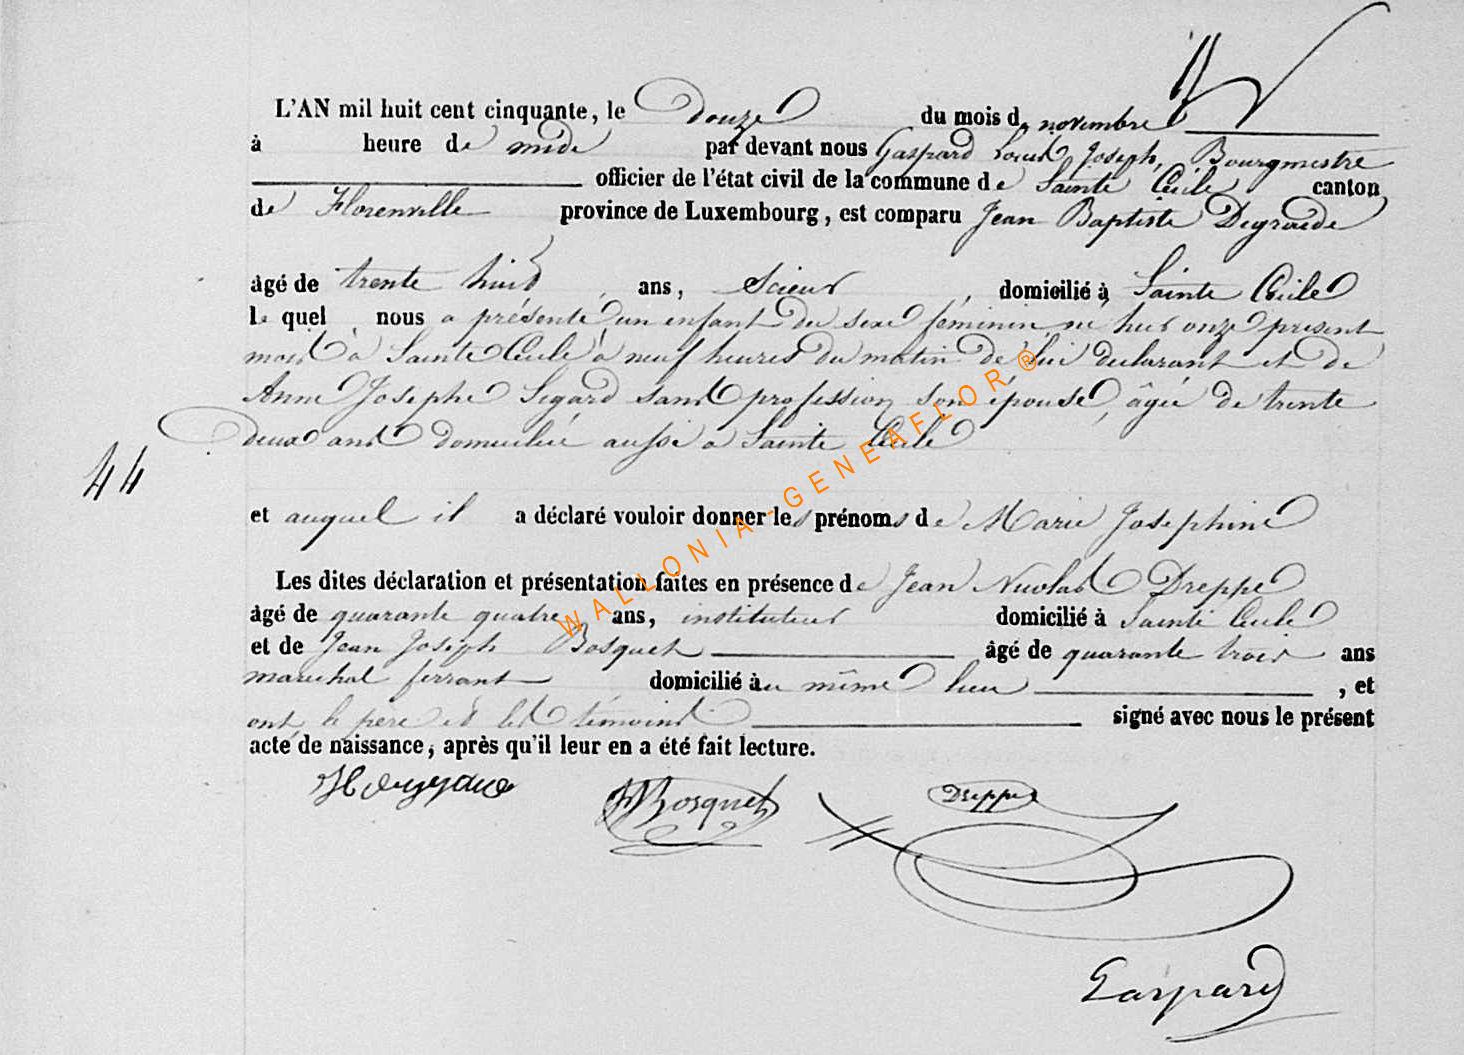 L'AN mil huit cent cinquante, le Douze du mois de novembre
à heure de midi par devant nous Gaspard Louis Joseph, Bourgmestre
officier de l'état civil de la commune de Sainte Cécile canton
de Florenville province de Luxembourg, est comparu Jean Baptiste Degraide
âgé de trente huit ans, Scieur domicilié à Sainte Cécile
le quel nous a présenté un enfant du sexe féminin, né hier onze present
mois à Sainte Cécile à neuf heures du matin de lui declarant et de
Anne Josephe Segard sans profession son épouse, âgée de trente
deux ans domiciliée aussi à Sainte Cécile
44
et auquel il a déclaré vouloir donner les prénoms de Marie Josephine
Les dites déclaration et présentation faites en présence de Jean Nicolas Dreppe
âgé de quarante quatre ans, instituteur domicilié à Sainte Cécile
et de Jean Joseph Bosquet âgé de quarante trois ans
marechal ferrant domicilié au même lieu , et
ont le pere et les témoins signé avec nous le présent
acte de naissance, après qu'il leur en a été fait lecture.
Bosquet Dreppe
Gaspard
WALLONIA-GENEAFLOR®